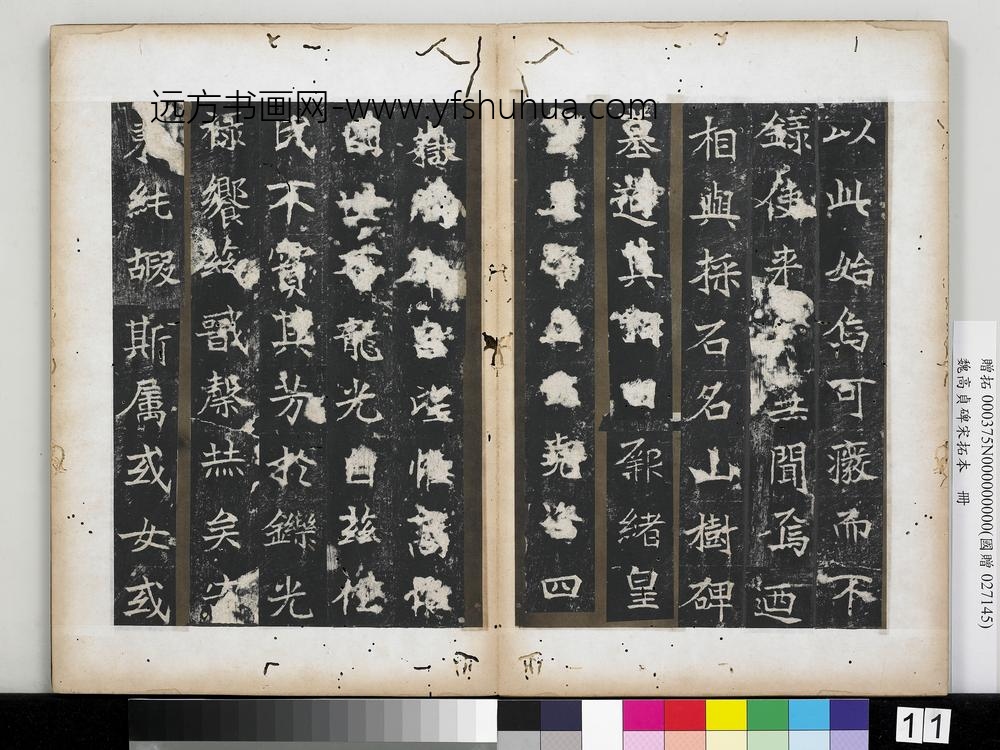 远方书画网-www.yfshuhua.com
以此始焉可廢而不
錄使來世聞焉迺
相與採石名山樹碑
墓道其詞曰厥緒皇
堯咨四
嶽
國世龍光自茲
民不實其芳於鑠光
祿饗茲誠馨恭矣
純嘏斯屬或女或
贈拓 000375N000000000(國贈 027145)
魏高貞碑宋拓本 冊
11